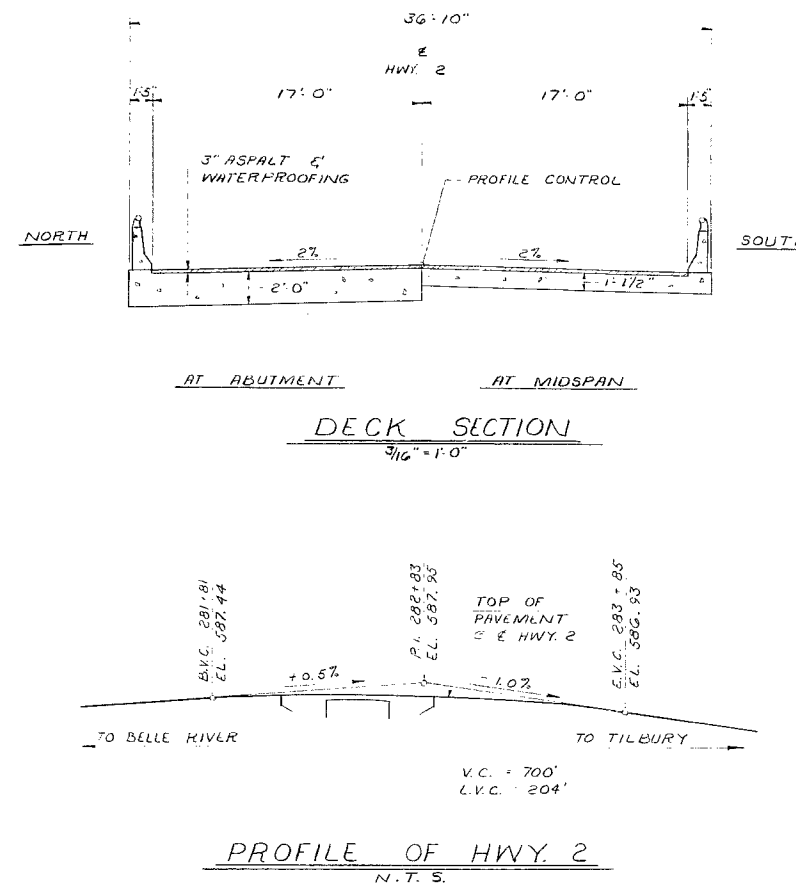 36'-10"
℄
HWY. 2
1'-5" 17'-0" 17'-0" 1'-5"
3" ASPALT &
WATERPROOFING
PROFILE CONTROL
NORTH
SOUT
2% 2%
2'-0" 1'-1/2"
AT ABUTMENT AT MIDSPAN
DECK SECTION
3/16" = 1'-0"
B.V.C. 281+81
EL. 587.44
P.I. 282+83
EL. 587.95
E.V.C. 283+85
EL. 586.93
TOP OF
PAVEMENT
@ ℄ HWY. 2
+0.5% -1.0%
TO BELLE RIVER
TO TILBURY
V.C. = 700'
L.V.C. = 204'
PROFILE OF HWY. 2
N.T.S.